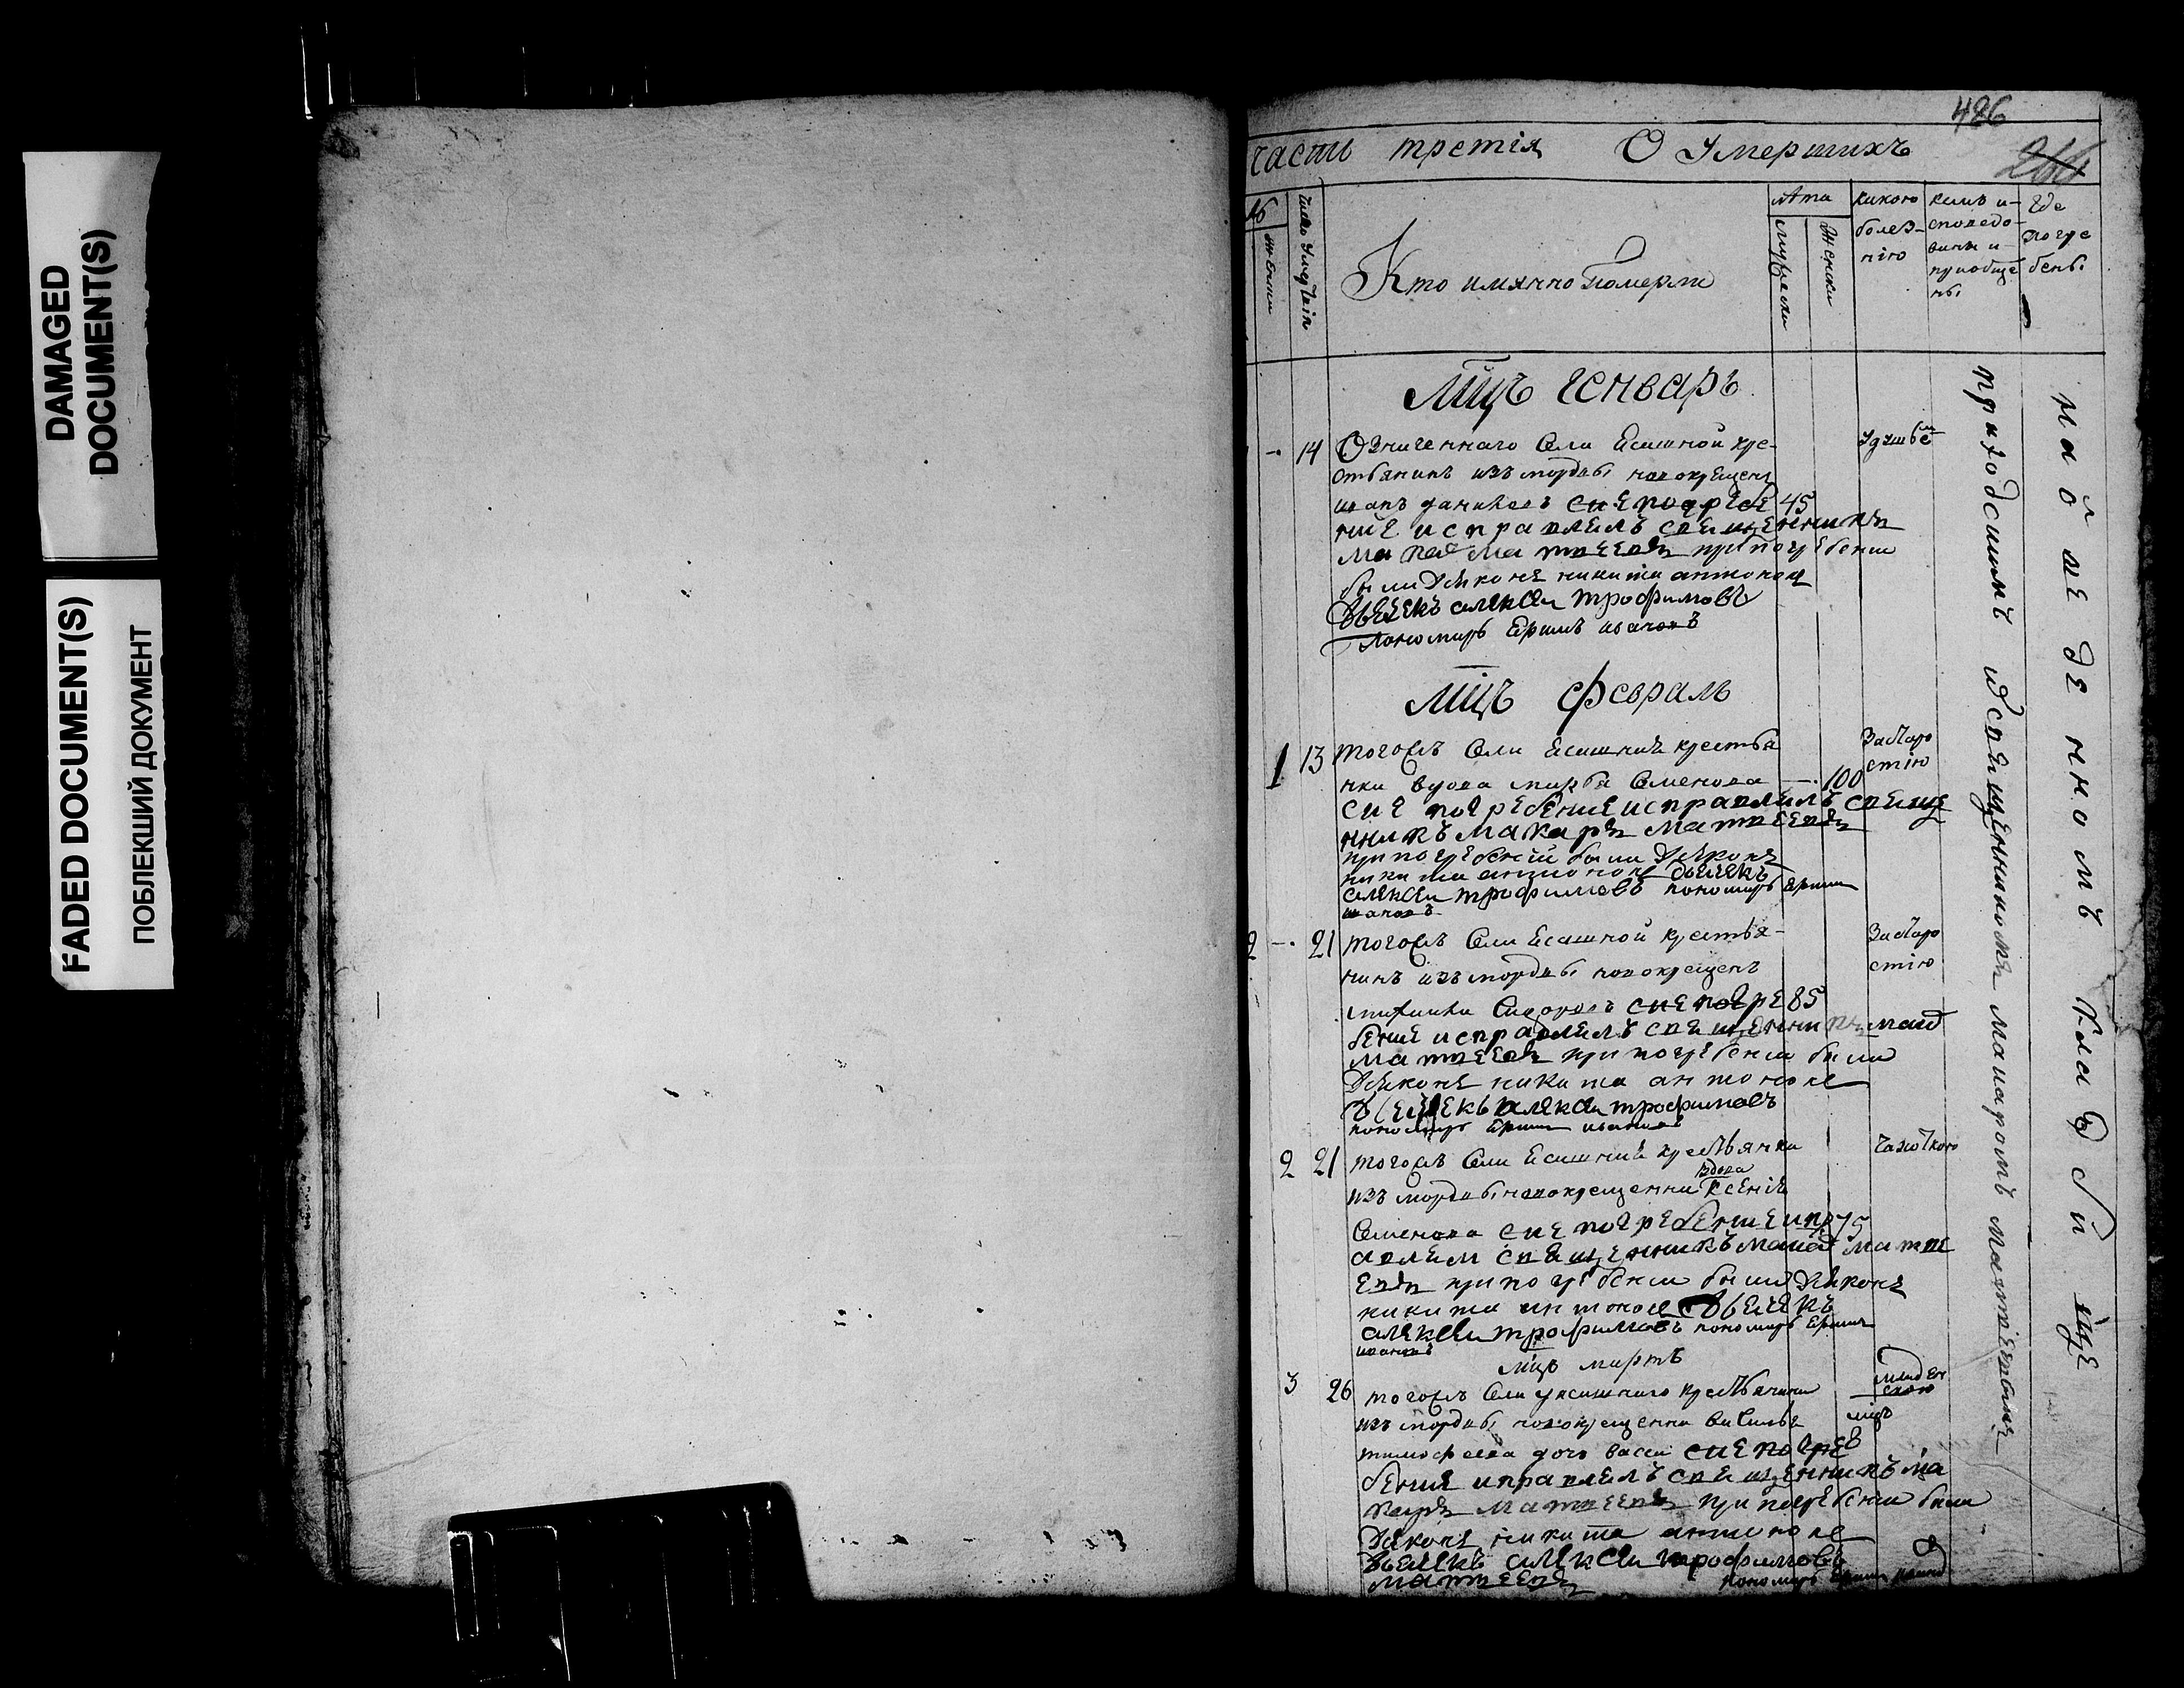 DAMAGED
DOCUMENT(S)
FADED DOCUMENT(S)
ПОБЛЕКШИЙ ДОКУМЕНТ
486
264
части третія О Умершихъ
№
женски
число умертвія
Кто имянно Померли
лѣта
мужески
женски
какою
болез-
нію
кемъ и-
споведо-
ваны и
приобще
ны
где
погре
бены
Мцъ Генварь
14 Означеннаго Села Ясашной кре-
стьянинъ изъ мордвы новокрещенъ
иванъ даниловъ сие погребе 45
ние исправлялъ священникъ
макаръ матвеевъ при погребении
были дьяконъ никита антонов
дьячекъ алексей трофимовъ
пономарь Ефимъ ивановъ
удушьем
Мцъ Февраль
1 13 тогожъ Села Ясашной крестья
нка вдова марфа Семенова 100
сие погребение исправлялъ свяще
нникъ макаръ матвеевъ
при погребении были дьяконъ
никита антонов дьячекъ
алексей трофимовъ пономарь Ефим
ивановъ
Застаро
стію
2 21 тогожъ Села Ясашной крестья-
нинъ изъ мордвы новокрещенъ
Сидоровъ сие погре 85
бение исправлялъ священникъ макар
матвеевъ при погребении были
дьяконъ никита антонов
дьячекъ алексей трофимовъ
пономарь Ефим ивановъ
Застаро
стію
2 21 тогожъ Села Ясашной крестьянка
изъ мордвы новокрещенна вдова Ксения
Семенова сие погребение испр 75
авлял священникъ макар матве
евъ при погребении были дьяконъ
никита антонов дьячекъ
алексей трофимовъ пономарь Ефим
ивановъ
чахоткою
мцъ мартъ
3 26 тогожъ Села ясашнаго крестьянина
изъ мордвы новокрещенна Василья
тимофеева дочь васса сие погре
бения исправлялъ священникъ ма
каръ матвеевъ при погребении были
дьяконъ никита антонов
дьячекъ алексей трофимовъ
матвеевъ пономарь Ефим
младен
скою
мцъ
8
приходскимъ священникомъ макаромъ матвеевымъ
на отведенномъ кладбище